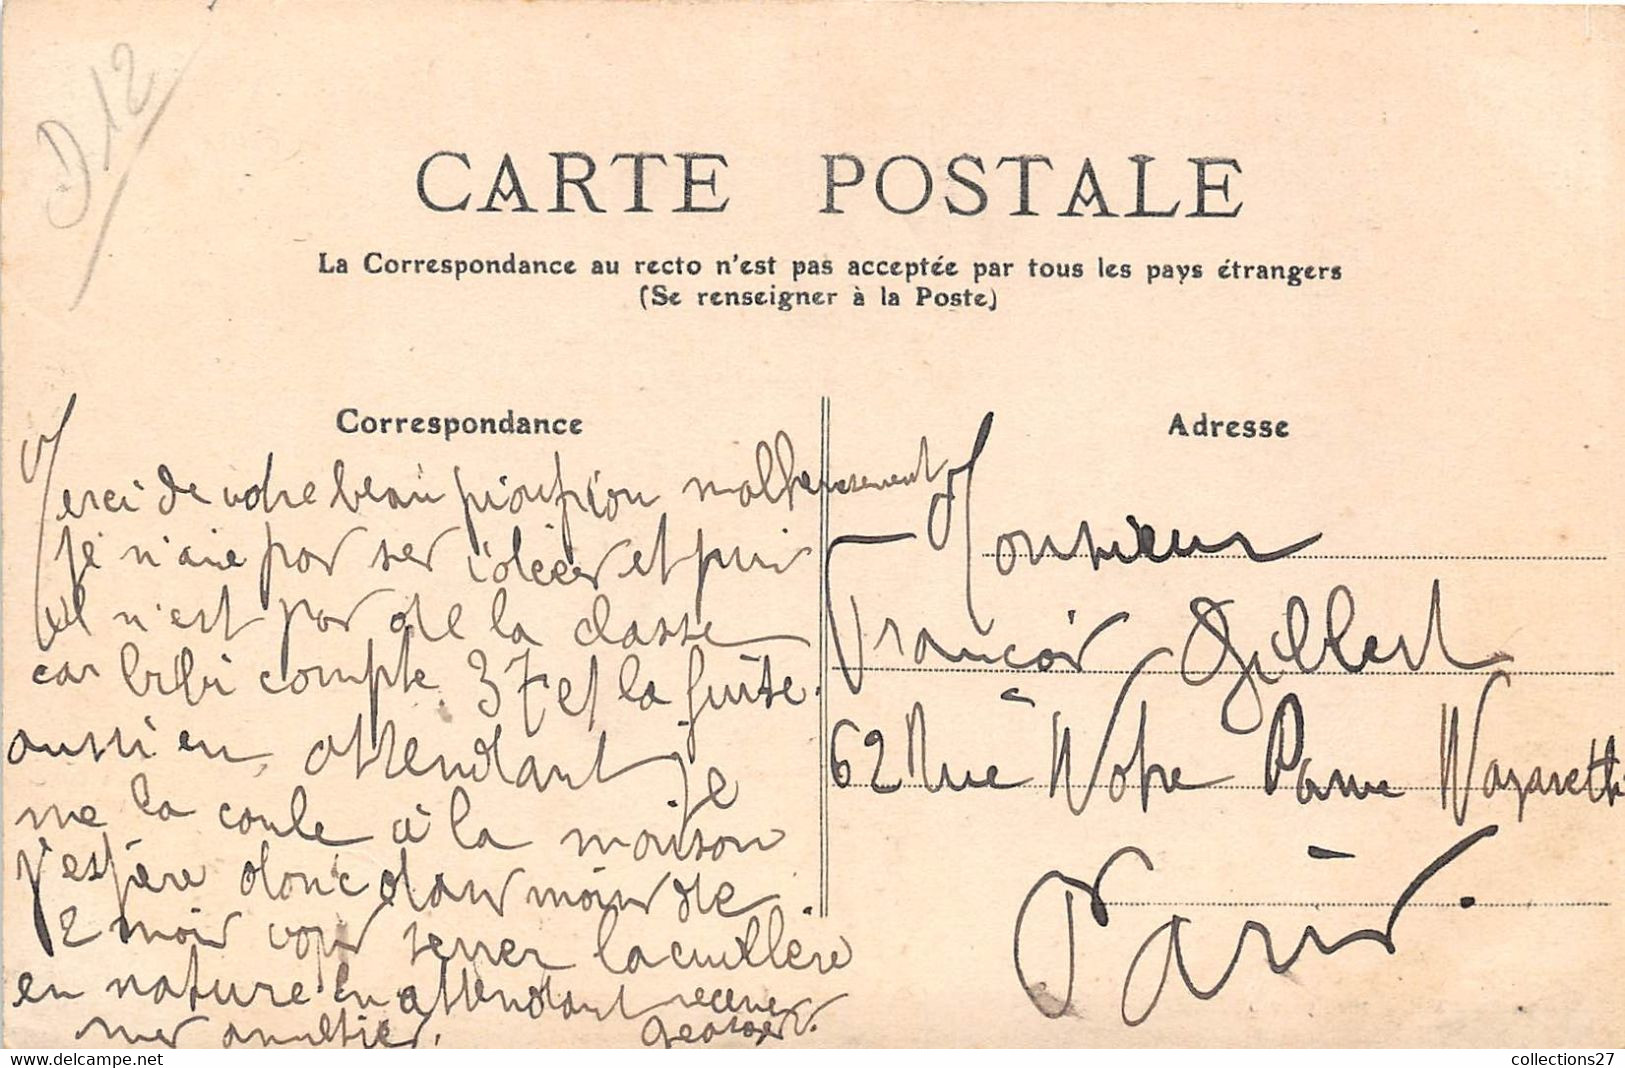 D12
CARTE POSTALE
La Correspondance au recto n'est pas acceptée par tous les pays étrangers
(Se renseigner à la Poste)
Correspondance
Merci de votre beau pioupiou malheureusement
je n'aie pas ses idéer et puis
il n'est pas de la classe
car bibi compte 37 et la fuite.
aussi en attendant je
me la coule à la maison
j'espère donc dans moins de
2 mois vous serrer la cuillère
en nature en attendant recever
mes amitiés.
Adresse
Monsieur
François Gillert
62 Rue Notre Dame Nazareth
Paris.
collections27